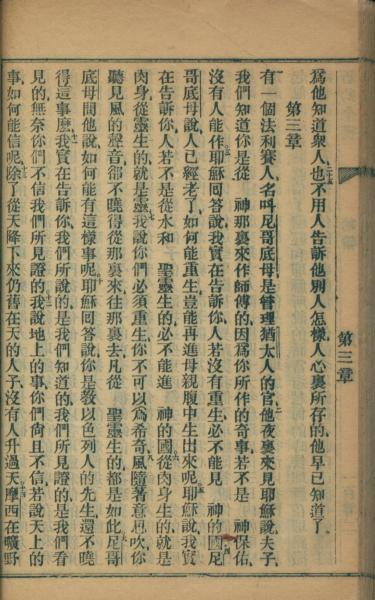 爲他知道衆人、也不用人告訴他别人怎樣人心裏所存的他早已知道了、
第三章
有一個法利賽人名呌尼哥底母是管理猶太人的官他夜裏來見耶穌說夫子、
我們知道你是從 神那裏來作師傅的因爲你所作的奇事若不是 神保佑、
沒有人能作耶穌回答說我實在告訴你人若沒有重生必不能見 神的國尼
哥底母說人已經老了如何能重生豈能再進母親腹中生出來呢耶穌說我實
在告訴你人若不是從水和 聖靈生的必不能進 神的國從肉身生的就是
肉身從靈生的就是靈我說你們必須重生你不可以爲希奇風隨著意思吹你
聽見風的聲音卻不曉得從那裏來往那裏去凡從 聖靈生的都是如此尼哥
底母問他說如何能有這樣事呢耶穌回答說你是敎以色列人的先生還不曉
得這事麽我實在告訴你我們所說的是我們知道的我們所見證的是我們看
見的無奈你們不信我們所見證的我說地上的事你們尙且不信若說天上的
事如何能信呢除了從天降下來仍舊在天的人子沒有人升過天摩西在曠野
第三章